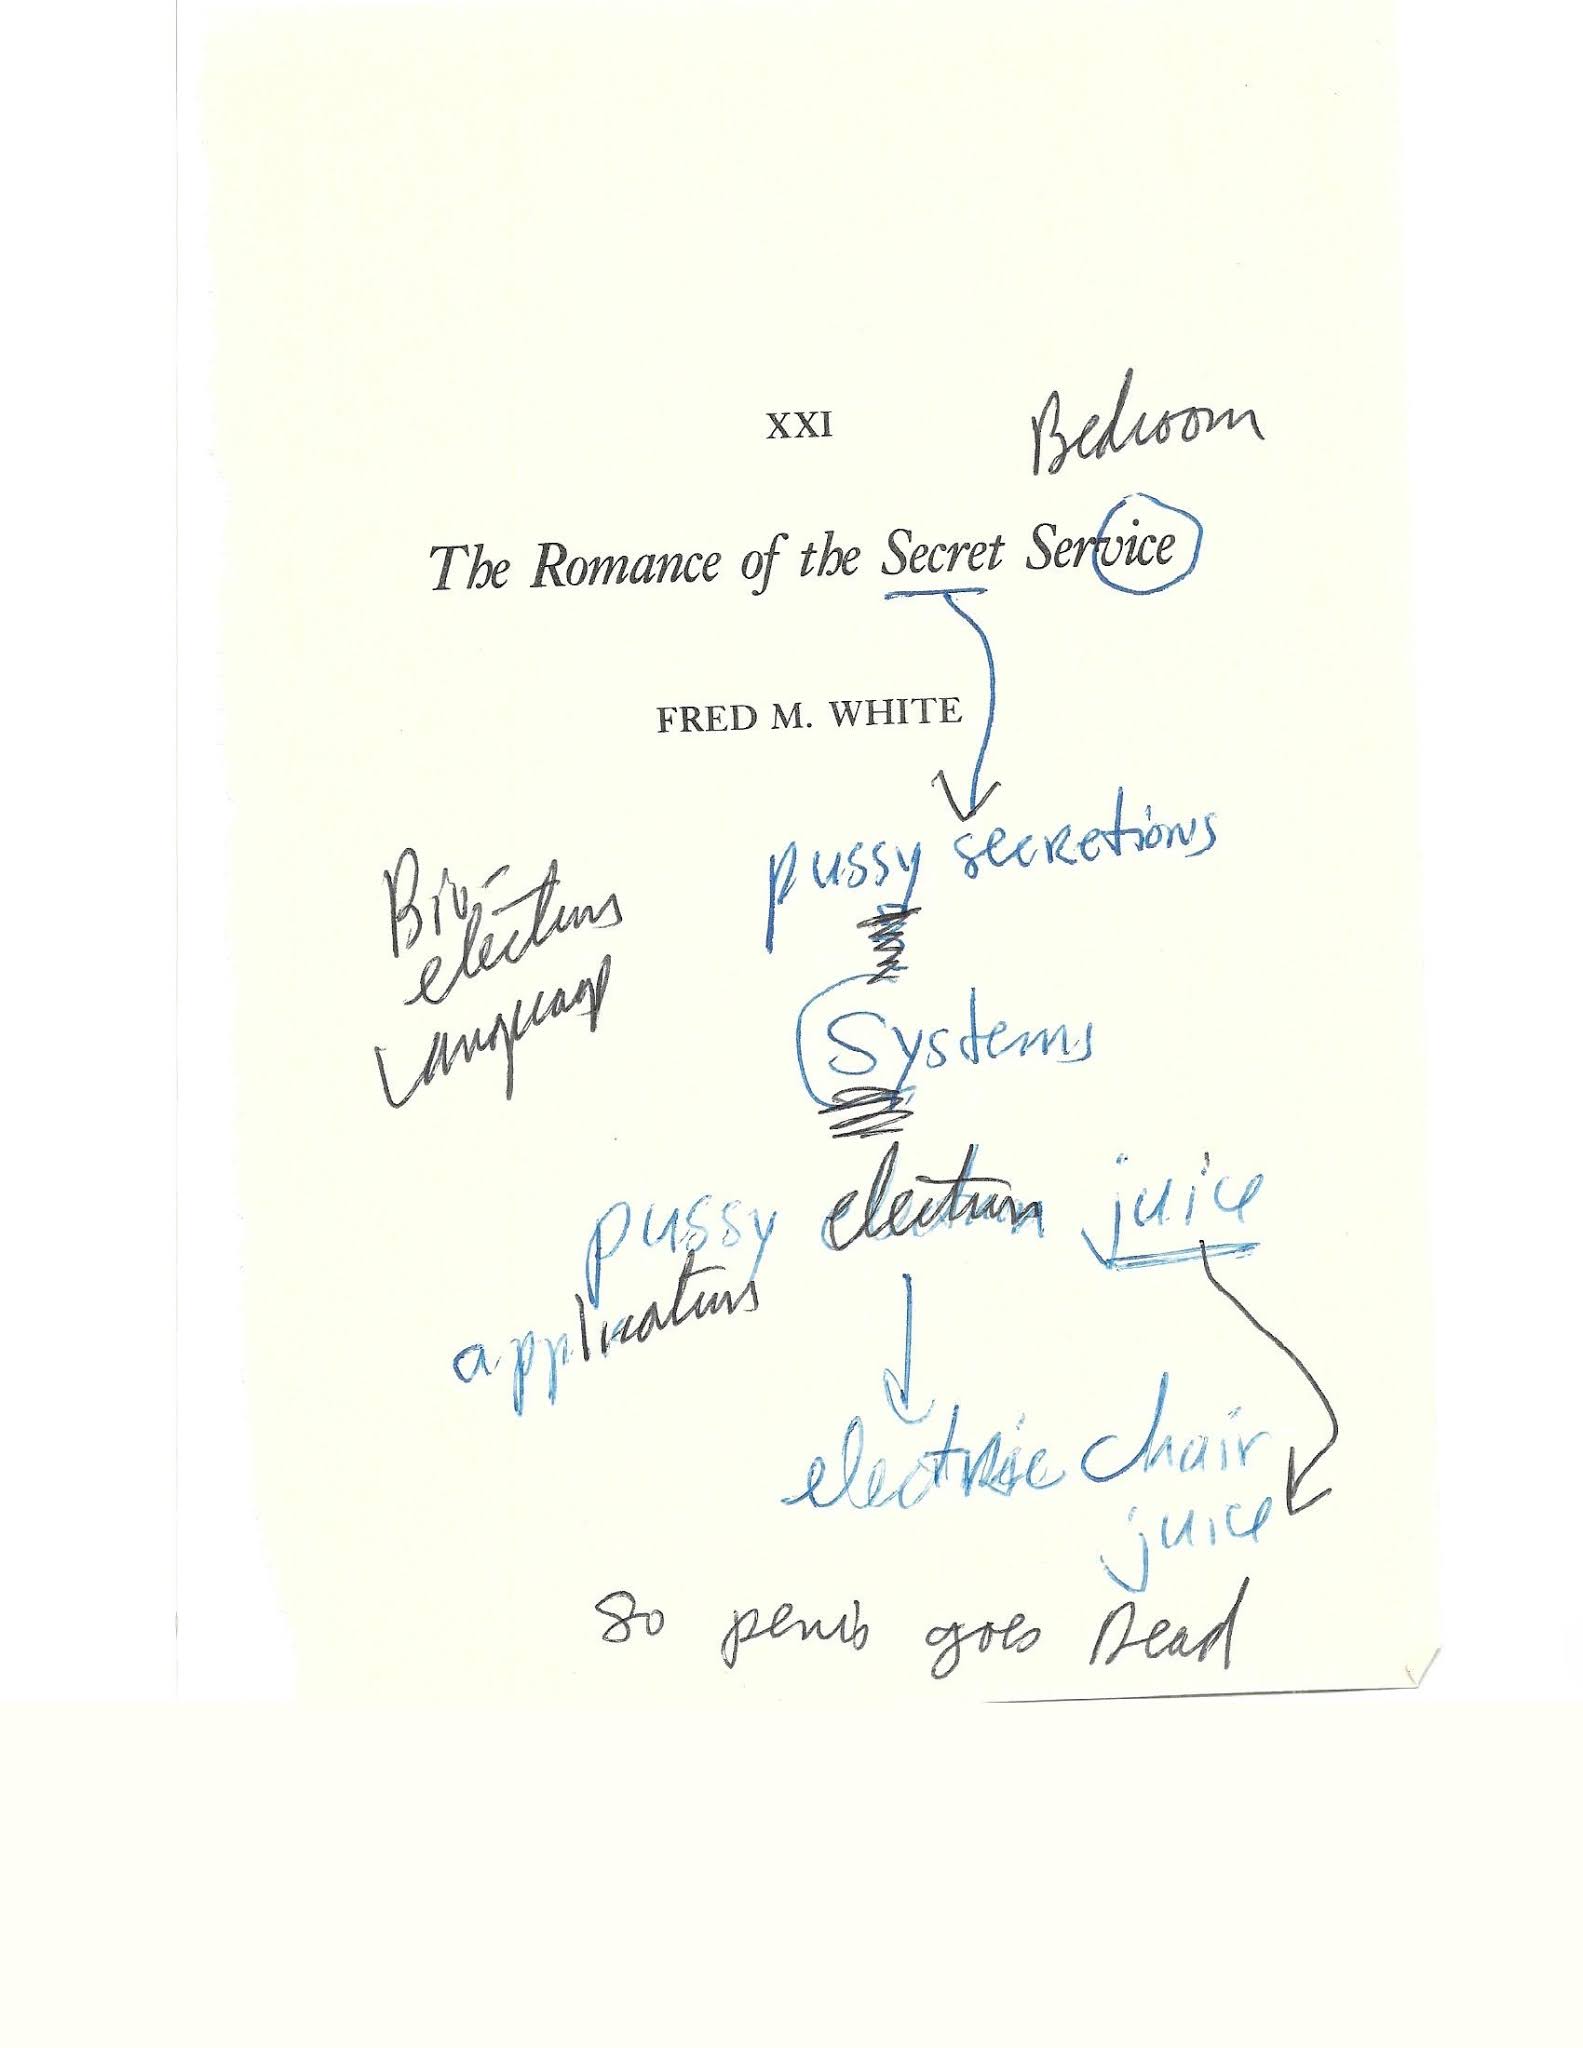 XXI
Bedroom
The Romance of the Secret Service
FRED M. WHITE
pussy secretions
Bio-
electrons
Language
Systems
pussy electron juice
applications
electric chair
juice
So penis goes Dead